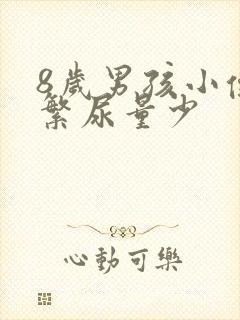 8歲男孩小
繁尿量少
心動可樂